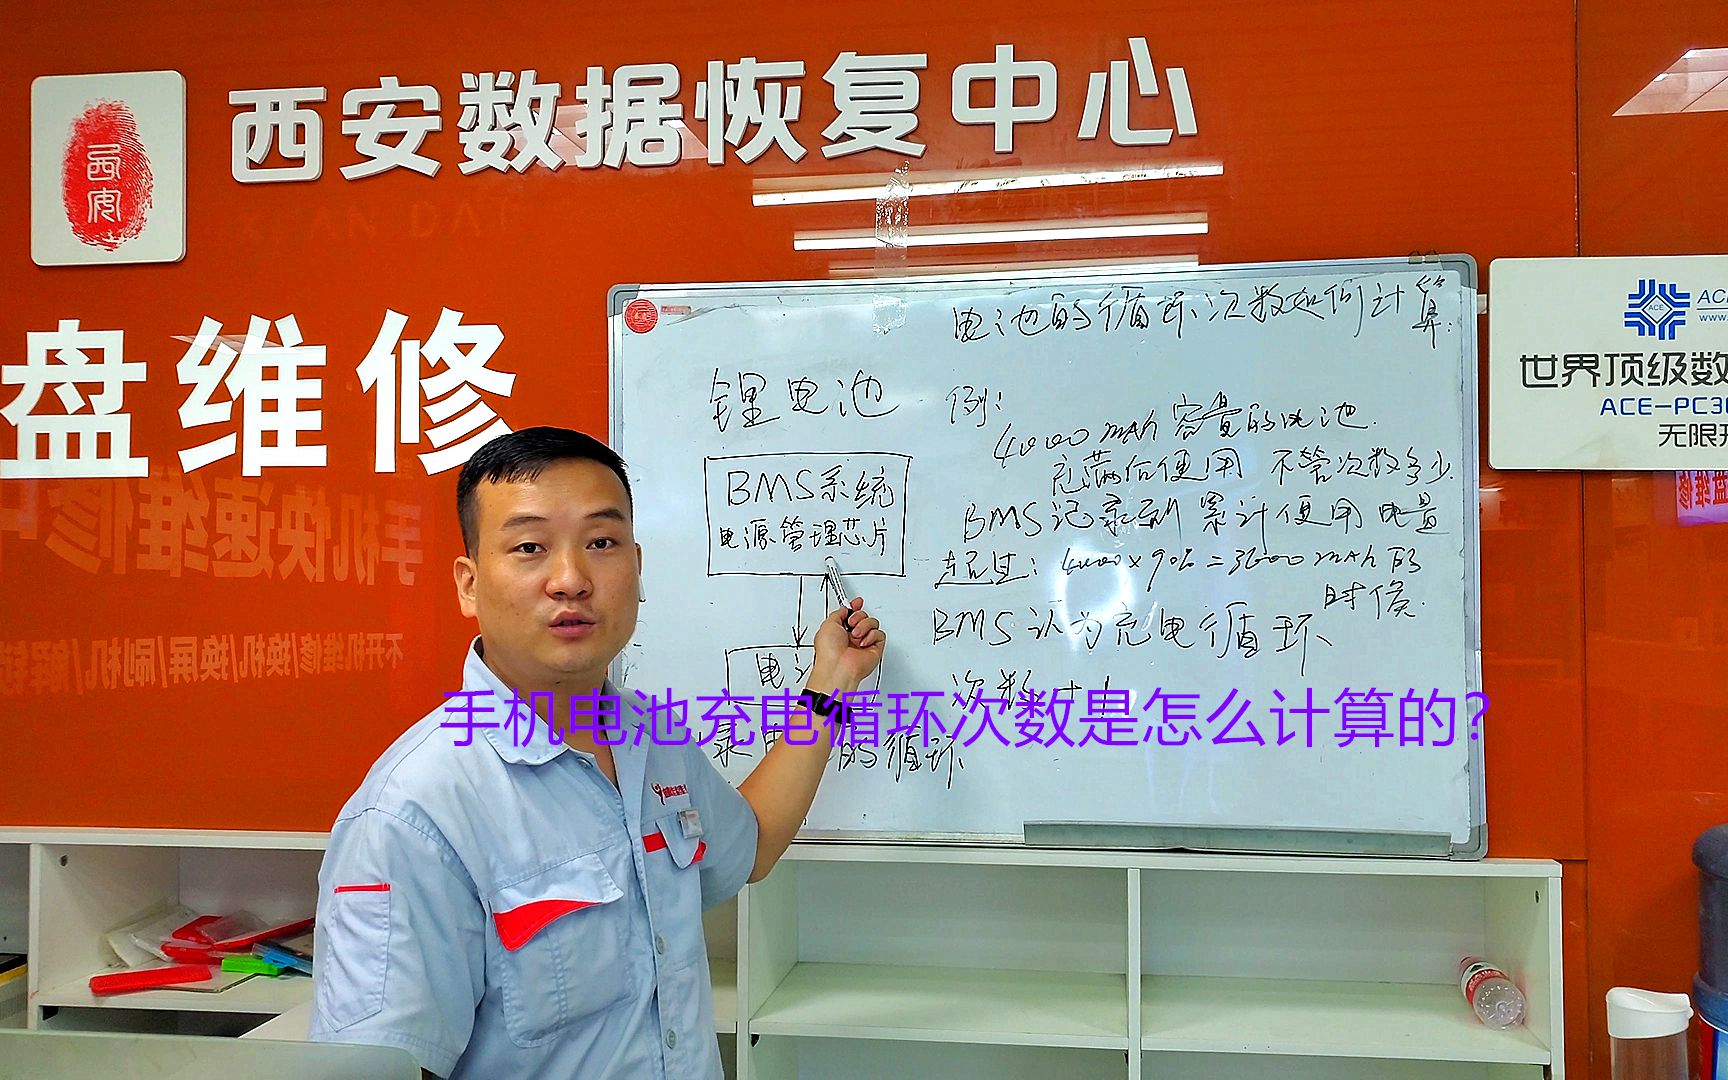 西安数据恢复中心
西安
盘维修
电池的循环次数如何计算:
锂电池
例:
4000 mAh 容量的电池.
充满后使用 不管次数多少.
BMS系统
电源管理芯片
BMS记录到累计使用电量
超过: 4000×90%=3600mAh 的
时候.
BMS 认为充电循环
次数+1
电
的循环
手机电池充电循环次数是怎么计算的?
ACE
www.
世界顶级数
ACE-PC30
无限
手机快速维修中
不开机维修/换机/换屏/刷机/解锁